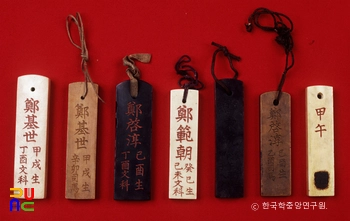 鄭基世
甲戌生
丁酉文科
鄭基世
甲戌生
鄭啓淳
己酉生
文科
鄭範朝
癸巳生
己未文科
鄭啓淳
甲午
© 한국학중앙연구원.